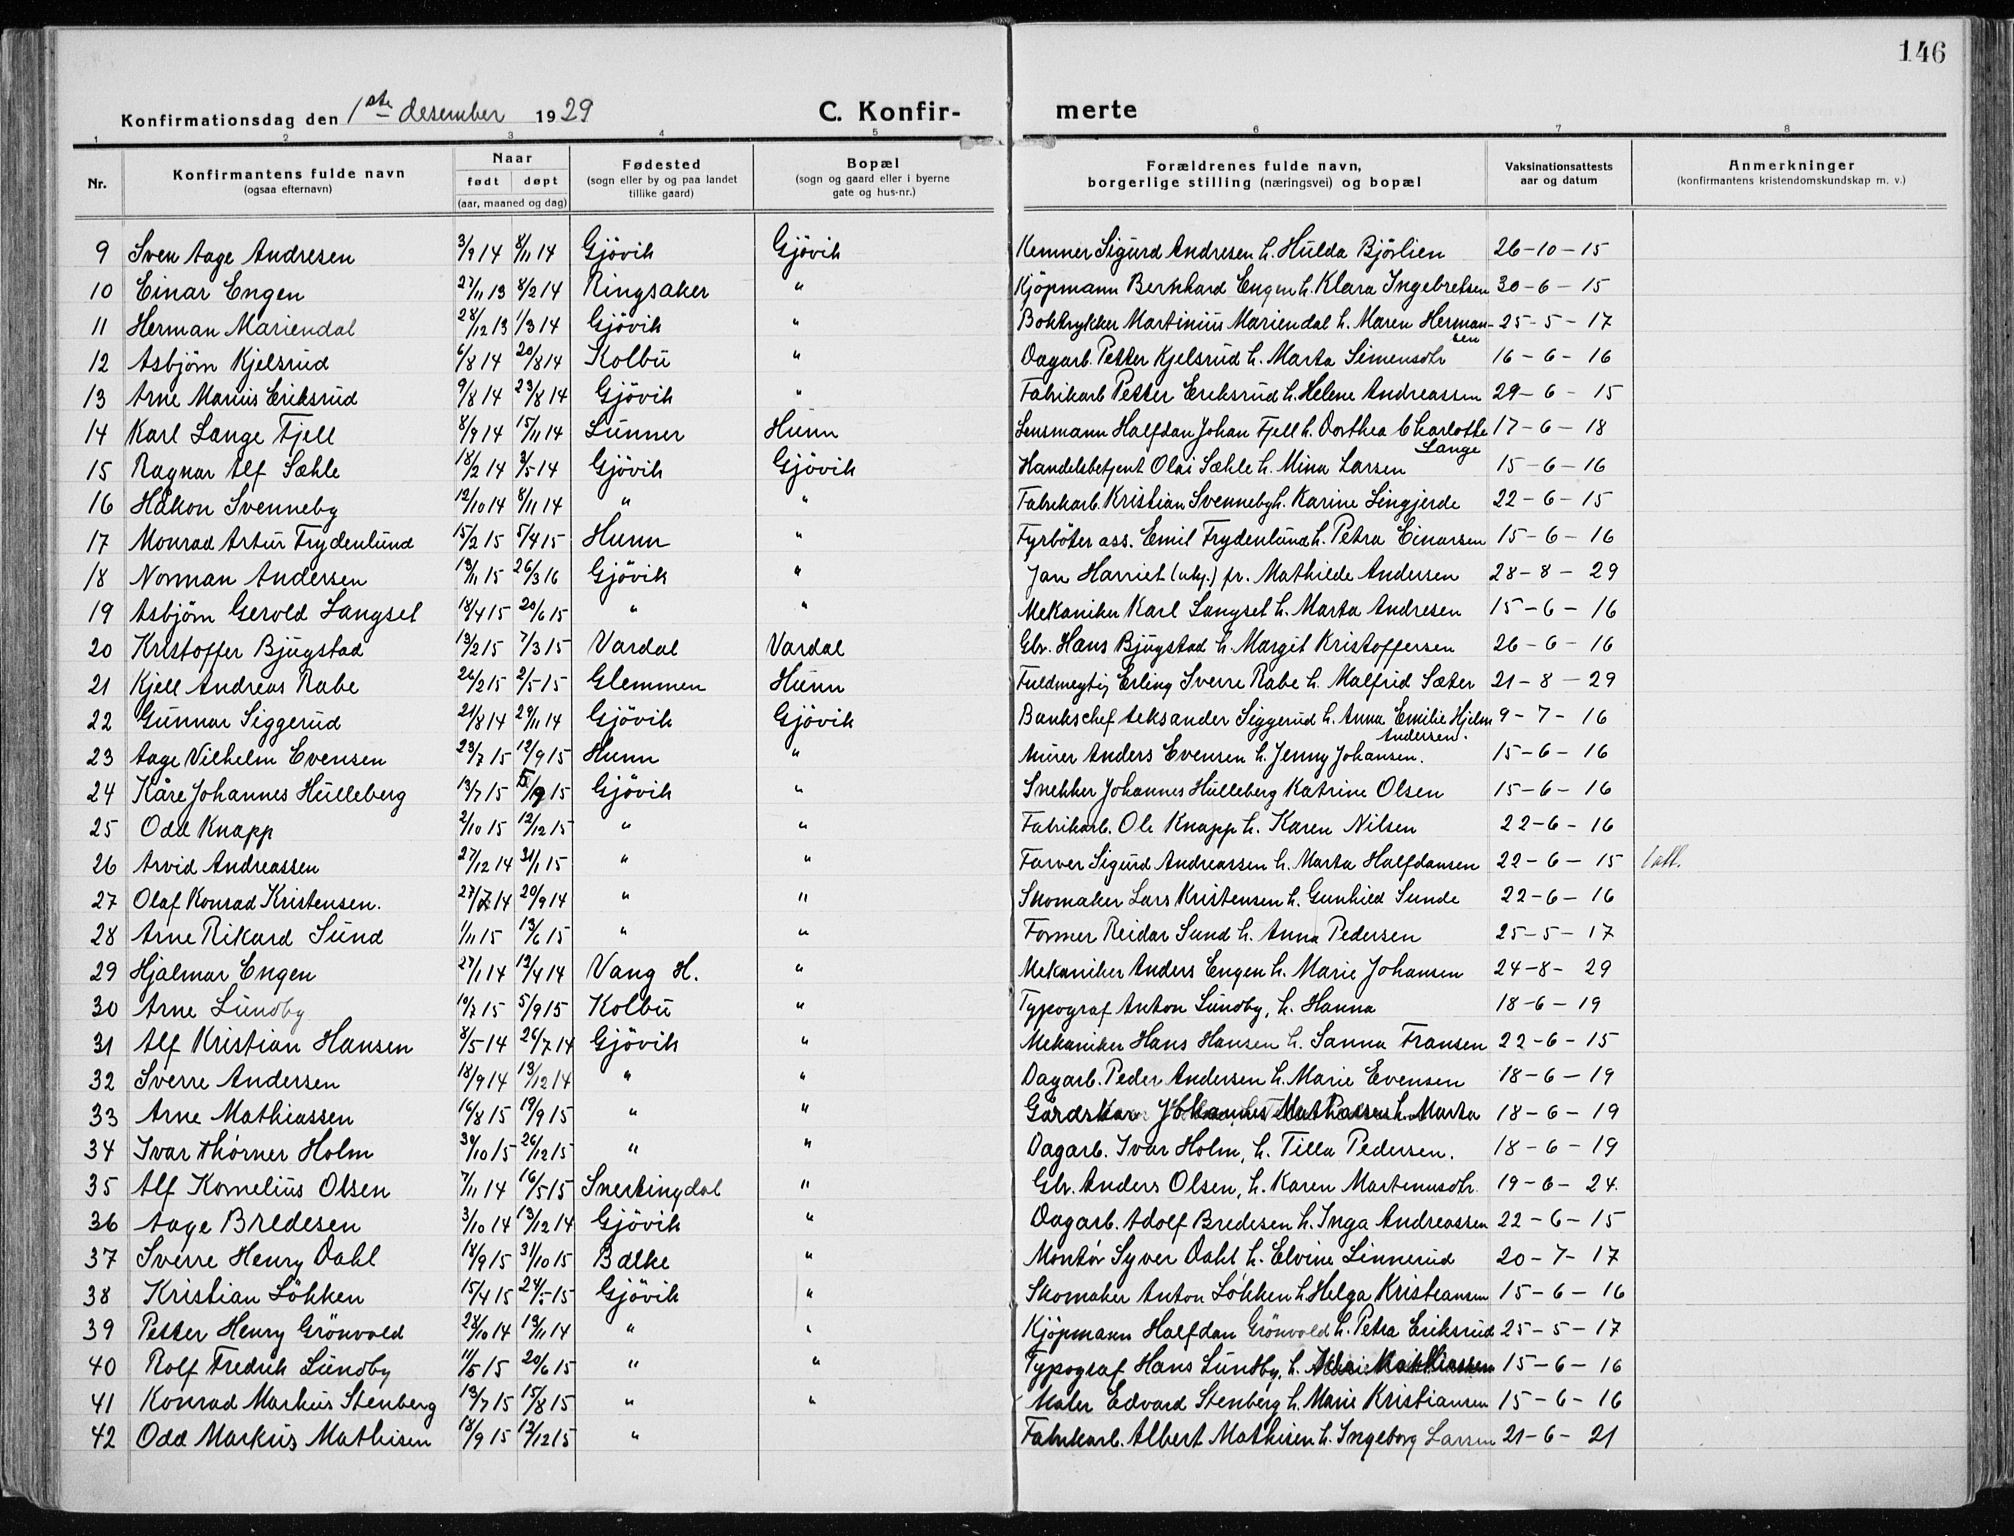 146
Konfirmationsdag den 1ste desember 1929 C. Konfir- merte
1 2 3 4 5 6 7 8
Nr. Konfirmantens fulde navn (ogsaa efternavn) Naar født døpt (aar, maaned og dag) Fødested (sogn eller by og paa landet tillike gaard) Bopæl (sogn og gaard eller i byerne gate og hus-nr.) Forældrenes fulde navn, borgerlige stilling (næringsvei) og bopæl Vaksinationsattests aar og datum Anmerkninger (konfirmantens kristendomskundskap m. v.)
9 Sven Aage Andresen 3/9 14 8/11 14 Gjövik Gjövik Kemner Sigurd Andresen h. Hulda Bjørlien 26-10-15
10 Einar Engen 27/11 13 8/2 14 Ringsaker " Kjöpmann Bernhard Engen h. Klara Ingebretsen 30-6-15
11 Herman Mariendal 28/12 13 1/3 14 Gjövik " Boktrykker Martinius Mariendal h. Maren Hermansen 25-5-17
12 Asbjörn Kjelsrud 6/8 14 20/8 14 Kolbu " Dagarb. Petter Kjelsrud h. Marta Simensdtr 16-6-16
13 Arne Marius Eriksrud 9/8 14 23/8 14 Gjövik " Fabrikarb Petter Eriksrud h. Helene Andreassen 29-6-15
14 Karl Lange Fjell 8/9 14 15/11 14 Lunner Hunn Lensmann Halfdan Johan Fjell h. Dorthea Charlotte Lange 17-6-18
15 Ragnar Alf Sæhle 18/2 14 3/5 14 Gjövik Gjövik Handelsbetjent Olai Sæhle h. Mina Larsen 15-6-16
16 Håkon Svenneby 12/10 14 8/11 14 " " Fabrikarb. Kristian Svenneby h. Karine Lingjerde 22-6-15
17 Monrad Artur Frydenlund 15/2 15 5/4 15 Hunn " Fyrböter ass. Emil Frydenlund h. Petra Einarsen 15-6-16
18 Norman Andersen 13/11 15 26/3 16 Gjövik " Jan Harriet (utg.) fr. Mathilde Andersen 28-8-29
19 Asbjörn Gerold Langset 18/4 15 20/6 15 " " Mekaniker Karl Langset h. Marta Andresen 15-6-16
20 Kristoffer Bjugstad 13/2 15 7/3 15 Vardal Vardal Gbr. Hans Bjugstad h. Margit Kristoffersen 26-6-16
21 Kjell Andreas Rabe 26/2 15 2/5-15 Glemmen Hunn Fuldmegtig Erling Sverre Rabe h. Malfrid Sæter 21-8-29
22 Gunnar Siggerud 21/8 14 29/11 14 Gjövik Gjövik Bankschef Aleksander Siggerud h. Anna Emilie Hjelm Andersen. 9-7-16
23 Aage Vilhelm Evensen 23/7 15 12/9 15 Hunn " Murer Anders Evensen h. Jenny Johansen. 15-6-16
24 Kåre Johannes Hulleberg 13/7 15 5/9 15 Gjövik " Snekker Johannes Hulleberg Katrine Olsen 15-6-16
25 Odd Knapp 2/10 15 12/12 15 " " Fabrikarb. Ole Knapp h. Karen Nilsen 22-6-16
26 Arvid Andreassen 27/12 14 31/1 15 " " Farver Sigurd Andreassen h. Marta Halfdansen 22-6-15 1 att.
27 Olaf Konrad Kristensen. 27/7 14 20/9 14 " " Skomaker Lars Kristensen h. Gunhild Sunde 22-6-16
28 Arne Rikard Sund 1/11 15 13/6 15 " " Former Reidar Sund h. Anna Pedersen 25-5-17
29 Hjalmar Engen 27/1 14 12/4 14 Vang H. " Mekaniker Anders Engen h. Marie Johansen 24-8-29
30 Arne Lundby 10/7 15 5/9 15 Kolbu " Typograf Anton Lundby, h. Hanna 18-6-19
31 Alf Kristian Hansen 8/5 14 26/7 14 Gjövik " Mekaniker Hans Hansen h. Sanna Fransen 22-6-15
32 Sverre Andersen 18/9 14 13/12 14 " " Dagarb. Peder Andersen h. Marie Evensen 18-6-19
33 Arne Mathiassen 16/8 15 19/9 15 " " Gårdskar Johannes Mathiassen h. Marta 18-6-19
34 Ivar Thørner Holm 30/10 15 26/12 15 " " Dagarb. Ivar Holm, h. Tilla Pedersen. 18-6-19
35 Alf Kornelius Olsen 7/11 14 16/5 15 Snertingdal " Gbr. Anders Olsen, h. Karen Martinusdtr. 19-6-24.
36 Aage Bredesen 3/10 14 13/12 14 Gjövik " Dagarb. Adolf Bredesen h. Inga Andreassen 22-6-15
37 Sverre Henry Dahl 18/9 15 31/10 15 Balke " Montør Syver Dahl h. Elvine Linnerud 20-7-17
38 Kristian Lökken 15/4 15 24/5-15 Gjövik " Skomaker Anton Lökken h. Helga Kristiansen 15-6-16
39 Petter Henry Grönvold 28/10 14 19/11 14 " " Kjöpmann Halfdan Grönvold h. Petra Eriksrud 25-5-17
40 Rolf Fredrik Lundby 11/5 15 20/6 15 " " Typograf Hans Lundby, h. Mathiassen 15-6-16
41 Konrad Markus Stenberg 13/7 15 15/8 15 " " Maler Edvard Stenberg h. Marie Kristiansen 15-6-16
42 Odd Markus Mathisen 18/9 15 12/12 15 " Fabrikarb. Albert Mathisen h. Ingeborg Larsen 21-6-21